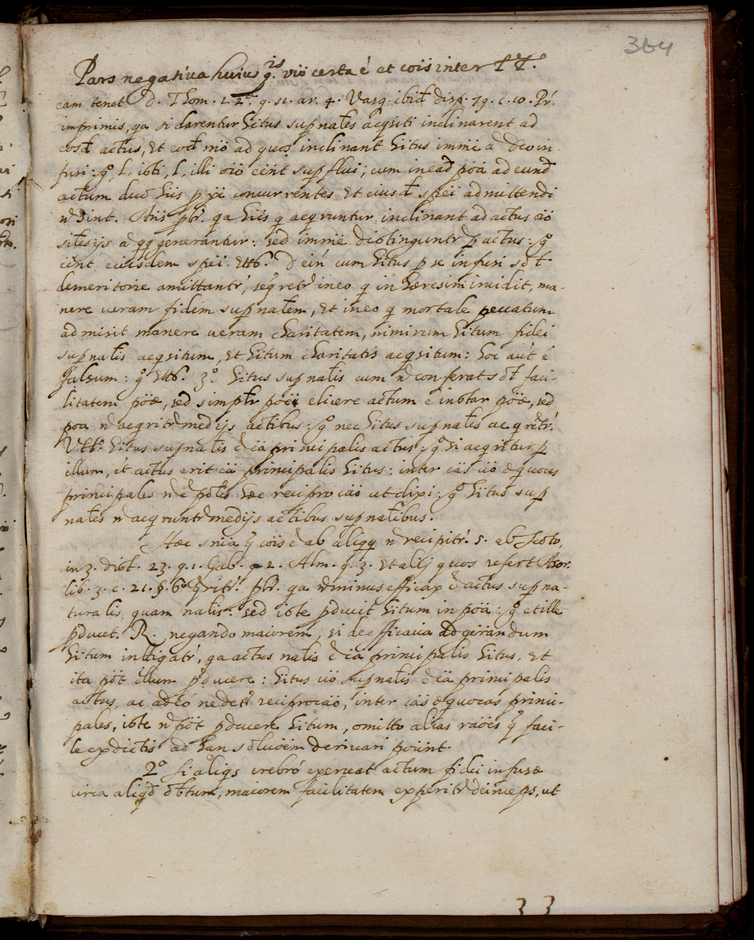 364
Pars negativa huius q.is vió certa é et cois inter TT.
eam tenet D. Thom. 1. 2.ae q. 51. ar. 4. Vasq. ibid disp. 79. c. 10. Pr.
imprimis, qa si darentur hitus supnales acqsiti inclinarent ad
eosd actus, et eod mó ad quos inclinant hitus immé a Deo in
fusi: q. isti, l. illi oió eént supflui; cum in ead poá ad eund
actum duo hiis p se concurrentes, et eiusd spéi admittendi
ñ sint. Ans pbr. qa hiis q acqruntur inclinant ad actus oió
siles ijs a qq generantur: sed immé distinguntr p actus: q.
eént eiusdem spéi: ult. Dein cum hitus p se infusi
demeritorie amittantr, seqretr in eo q in hæresim incidit, ma-
nere veram fidem supnalem, et in eo q mortale peccatum
admisit manere veram charitatem, nimirum hitum fidei
supnalis acqsitum, et hitum charitatis acqsitum: hoc aút é
falsum: q. 3.o hitus supnalis cum ñ conferat faci-
litatem poæ, sed simplr poss elicere actum é instar poæ, sed
poá ñ acqritr medijs actibus: q. nec hitus supnales acqretr.
Ult. hitus supnalis é cá principalis actus, q. si acqritur p
illum, et actus erit cá principalis hitus: inter cás ió æquocas
principales ñ é poslis hæc reciprocáo ut dixi: q. hitus sup
nales ñ acqruntr medijs actibus supnalibus.
Hæc snia q cois é ab aliqq ñ recipitr. s. ab Scoto,
in 3. dist. 23. q. 1. Gab. q. 2. Alm. q. 3. et alij quos refert Azor.
lib. 3. c. 21. §. 6.o pbr. qa ñ minus efficax é actus supna-
turalis, quam nalis. sed iste pducit hitum in poá: q. et ille
pducet. R. negando maiorem, si de efficacia ad gerandum
hitum intligatr, qa actus nalis é cá principalis hitus, et
ita pót illum pducere: hitus vió supnalis é cá principalis
actus, ac adeo ne detr reciprocáo, inter cás æquocas princi-
pales, iste ñ pót pducere hitum, omitto alias raóes q faci-
le ex dictis ad han soluóem derivari póunt.
2.o Si aliqs crebró exerceat actum fidei infusæ
circa aliqd obtum, maiorem facilitatem experitr deinceps, ut
33